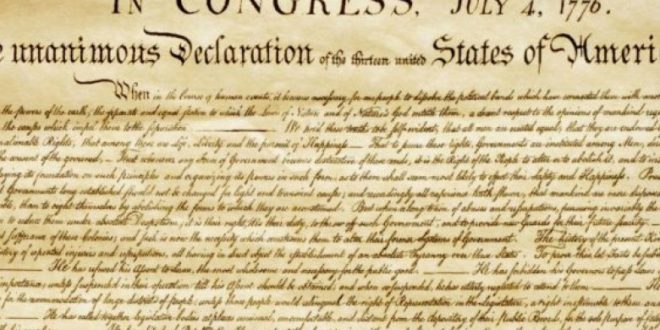 IN CONGRESS, JULY 4, 1776.
e unanimous Declaration of the thirteen united States of Ameri
When in the Course of human events, it becomes necessary for one people to dissolve the political bands which have connected them with anoth
the powers of the earth, the separate and equal station to which the Laws of Nature and of Nature's God entitle them, a decent respect to the opinions of mankind requi
the causes which impel them to the separation. We hold these truths to be self-evident, that all men are created equal, that they are endowed
unalienable Rights, that among these are Life, Liberty and the pursuit of Happiness. — That to secure these rights, Governments are instituted among Men,
the consent of the governed, — That whenever any Form of Government becomes destructive of these ends, it is the Right of the People to alter or to abolish it, and to
laying its foundation on such principles and organizing its powers in such form, as to them shall seem most likely to effect their Safety and Happiness.
Governments long established should not be changed for light and transient causes; and accordingly all experience hath shewn, that mankind are more
than to right themselves by abolishing the forms to which they are accustomed. But when a long train of abuses and usurpations, pursuing invariably the
to reduce them under absolute Despotism, it is their right, it is their duty, to throw off such Government, and to provide new Guards for their future security.
sufferance of these Colonies; and such is now the necessity which constrains them to alter their former Systems of Government. The history of the present
history of repeated injuries and usurpations, all having in direct object the establishment of an absolute Tyranny over these States. To prove this, let Facts be
He has refused his Assent to Laws, the most wholesome and necessary for the public good. He has forbidden his Governors to pass Laws
importance, unless suspended in their operation till his Assent should be obtained; and when so suspended, he has utterly neglected to attend to them. He
for the accommodation of large districts of people, unless those people would relinquish the right of Representation in the Legislature, a right inestimable to them
He has called together legislative bodies at places unusual, uncomfortable, and distant from the depository of their public Records, for the sole purpose of